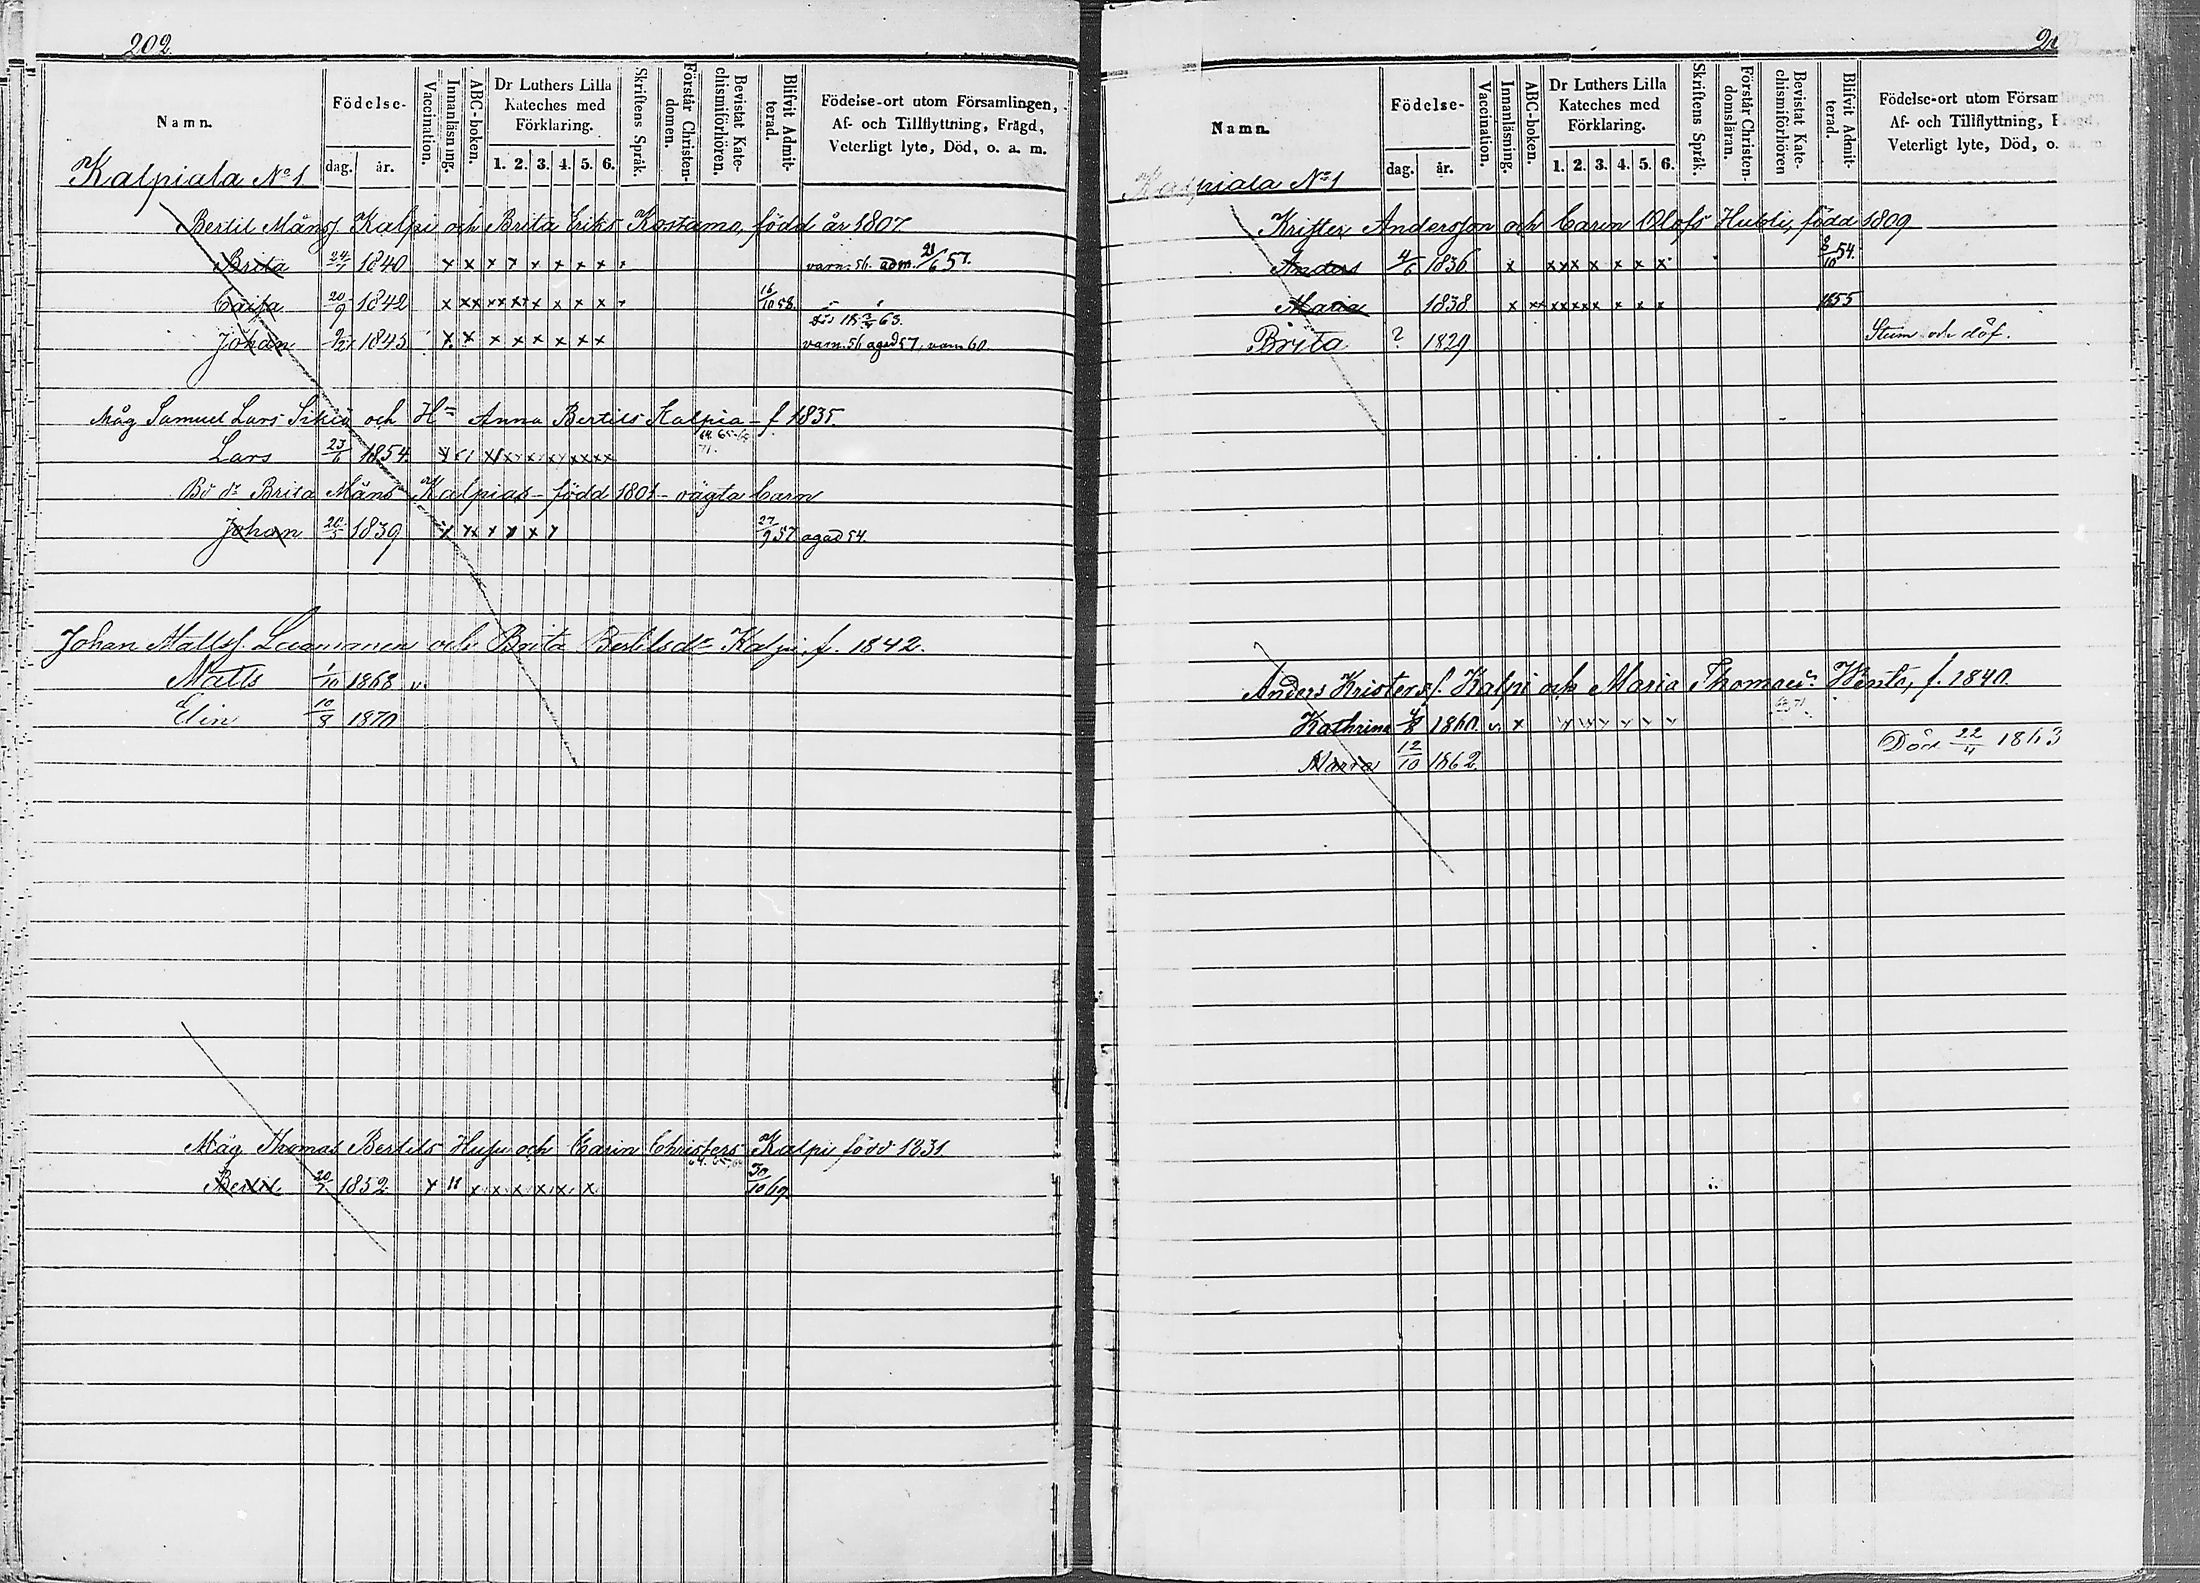 202.
Namn.
Födelse-
dag. år.
Vaccination.
Innanläsning.
ABC-boken.
Dr Luthers Lilla
Kateches med
Förklaring.
1. 2. 3. 4. 5. 6.
Skriftens Språk.
Förstår Christen-
domen.
Bevistat Kate-
chismiförhören.
Blifvit Admit-
terad.
Födelse-ort utom Församlingen,
Af- och Tillflyttning, Frägd,
Veterligt lyte, Död, o. a. m.
Kalpiala No 1
Bertil Månss. Kalpi och Brita Eriks Kostamo, född år 1807
Brita 24/1 1840 x x x x x x x x varn. 56. adm. 21/6 57.
Caisa 20/9 1842 x xx xx xx x x x x 16/10 58.
63.
Johan 1845 x x x x x x x x varn. 56 agad 57, varn 60.
Måg Samuel Lars och Hu Anna Bertils Kalpia - f 1835.
Lars 23/6 1854
Brita Måns Kalpias - född 1801 - barn
Johan 20/5 1839 x x x x x x 27/9 57 agad 54.
Johan Mattss. och Brita Bertilsdr Kalpi f. 1842.
Matts 1/10 1868 v.
Elin 10/8 1870
Måg Thomas Bertils Husu och Carin Christers Kalpi född 1831.
Bertil 20/7 1852 x 11 x x x x x x 30/10 69.
Namn.
Födelse-
dag. år.
Vaccination.
Innanläsning.
ABC-boken.
Dr Luthers Lilla
Kateches med
Förklaring.
1. 2. 3. 4. 5. 6.
Skriftens Språk.
Förstår Christen-
domsläran.
Bevistat Kate-
chismiförhören
Blifvit Admit-
terad.
Födelse-ort utom Församlingen
Af- och Tillflyttning, Frägd,
Veterligt lyte, Död, o. a. m.
Kalpiala No 1
Krister Andersson och Carin Olofs Hubli, född 1809
Anders 4/6 1836 x xxx x x x x 8/10 54.
Maria 1838 x xx xxxxx x x x 1855
Brita ? 1829 Stum och döf.
Anders Kristerss. Kalpi och Maria Thomasdr Wento, f. 1840.
Kathrina 4/8 1860. v. x
Maria 12/10 1862 Död 22/11 1863